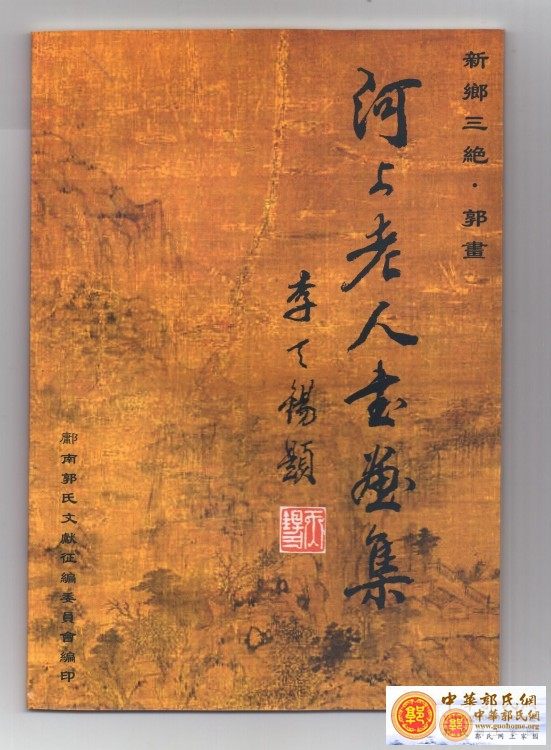 新鄉三絕·郭畫
河上老人書畫集
李天錫題
鄘南郭氏文獻征編委員會編印
郭
中華郭氏網
郭
中華郭氏網
www.guohome.org
郭氏网上家园